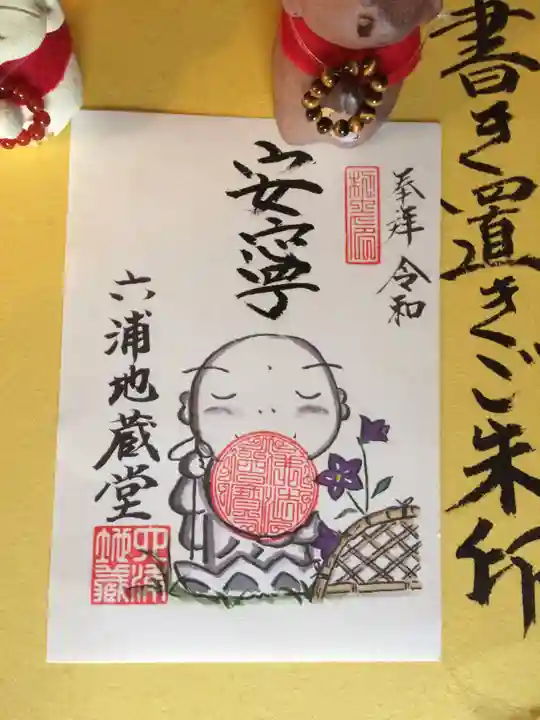 書き置きご朱印
奉拝 令和
安寧
六浦地蔵堂
六浦地蔵